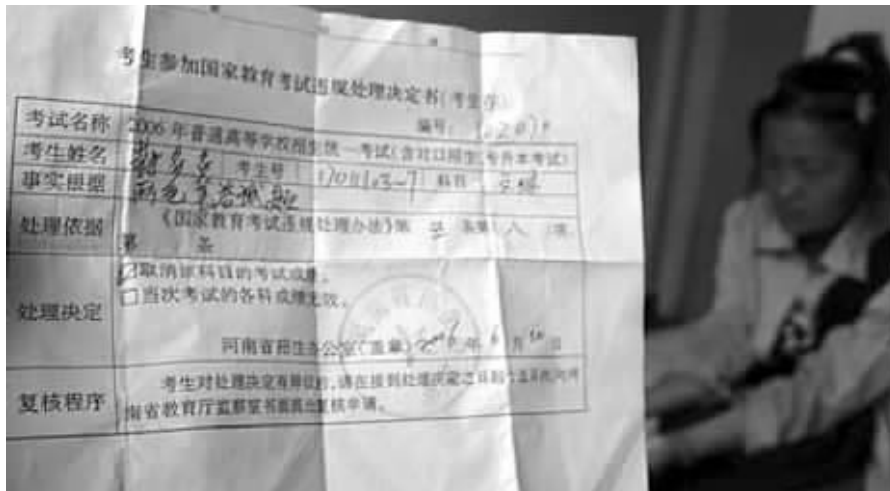 考生参加国家教育考试违规处理决定书(考生存)
编号:
考试名称 2006年普通高等学校招生统一考试(含对口招生、专升本考试)
考生姓名 考生号 科目
事实根据
处理依据 《国家教育考试违规处理办法》第 条第 八 项
第 条
处理决定 ☑取消该科目的考试成绩。
□当次考试的各科成绩无效。
河南省招生办公室(盖章) 2006年6月 日
复核程序 考生对处理决定有异议的,请在接到处理决定之日起十五日内向河
南省教育厅监察室书面提出复核申请。